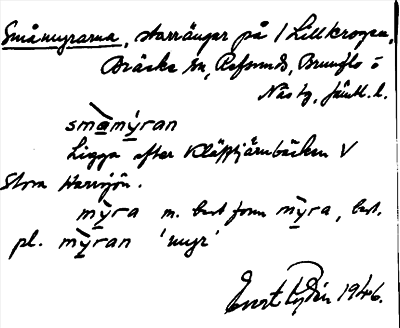 Småmyrarna, starrängar på 1 Lillkrogen,
Bräcke sn, Refsunds, Brunflo o
Näs tg, Jämtl. l.
småmýran
Ligga efter Kläpptjärnbäcken V
Stora Harrsjön.
mỳra m. best form mỳra, best.
pl. mỳran 'myr'
1946.